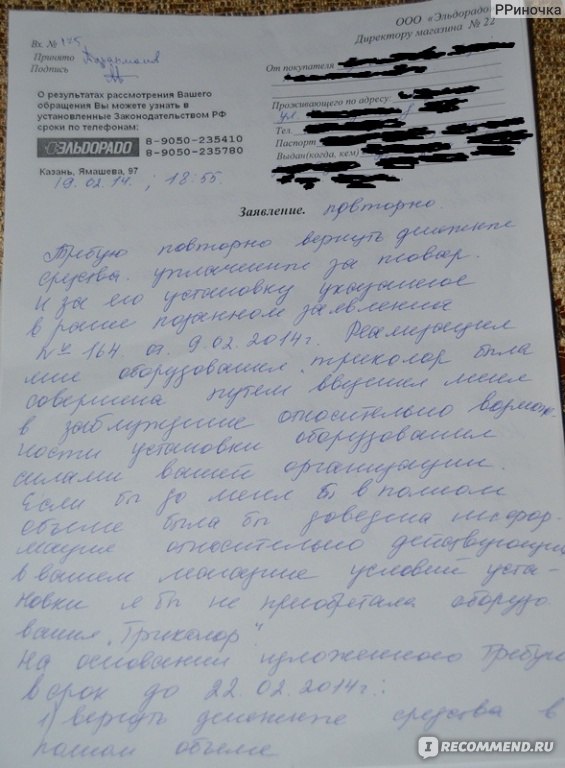 РРиночка
ООО "Эльдорадо"
Директору магазина № 22
Вх. № 175
Принято
Подпись
От покупателя
О результатах рассмотрения Вашего
обращения Вы можете узнать в
установленные Законодательством РФ
сроки по телефонам:
ЭЛЬДОРАДО 8-9050-235410
8-9050-235780
Проживающего по адресу:
ул.
Тел.
Паспорт
Выдан(когда, кем)
Казань, Ямашева, 97
19.02.14. ; 18:55
Заявление. повторно.
Требую повторно вернуть денежные
средства. уплаченные за товар.
И за его установку указанное
в ранее поданном заявлении
№ 164. от 9.02.2014г. Реализация
мне оборудования „триколор была
совершена путем введения меня
в заблуждение относительно возмож-
ности установки оборудования
силами вашей организации.
Если бы до меня в полном
объеме была бы доведена инфор-
мация относительно действующих
в вашем магазине условий уста-
новки я бы не приобретала оборудо
вания „Триколор".
На основании изложенного Требую
в срок до 22.02.2014г.:
1) вернуть денежные средства в
полном объеме
IRECOMMEND.RU